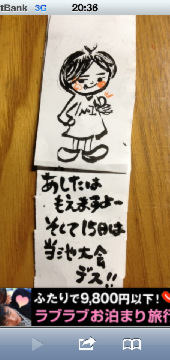 tBank 3G 20:36
あしたは
もえますよー
そして15日は
当汐大会
デス!!
ふたりで9,800円以下!
ラブラブお泊まり旅行